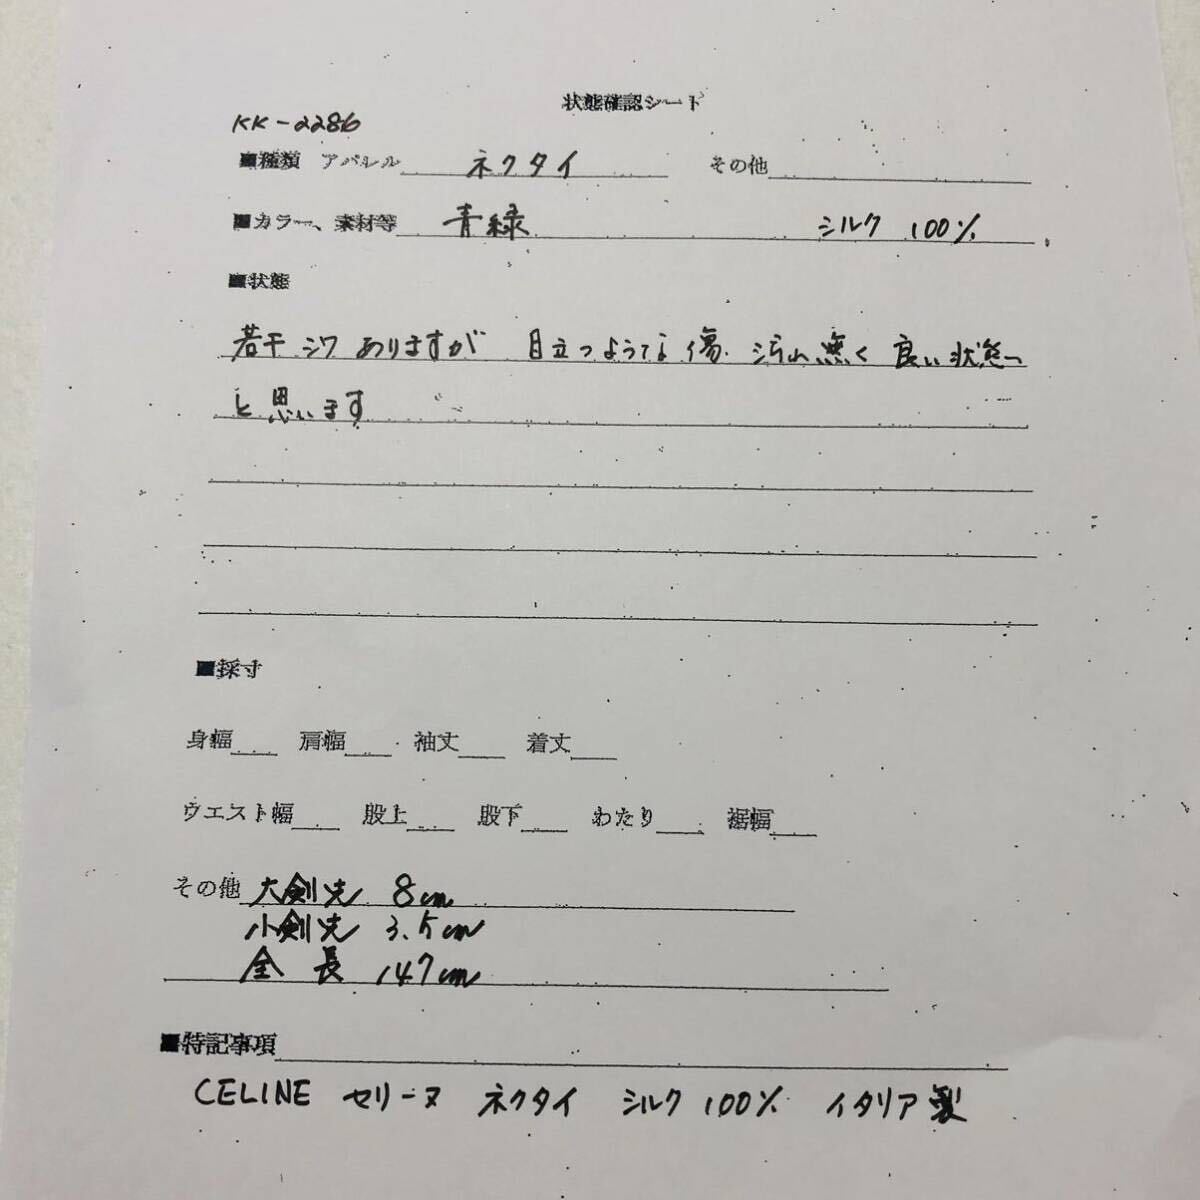 状態確認シート
KK-2286
■種類 アパレル ネクタイ その他
■カラー、素材等 青緑 シルク 100%
■状態
若干シワありますが 目立つような傷 汚れ無く 良い状態
と思います
■採寸
身幅 肩幅 袖丈 着丈
ウエスト幅 股上 股下 わたり 裾幅
その他 大剣先 8cm
小剣先 3.5cm
全長 147cm
■特記事項
CELINE セリーヌ ネクタイ シルク 100% イタリア製